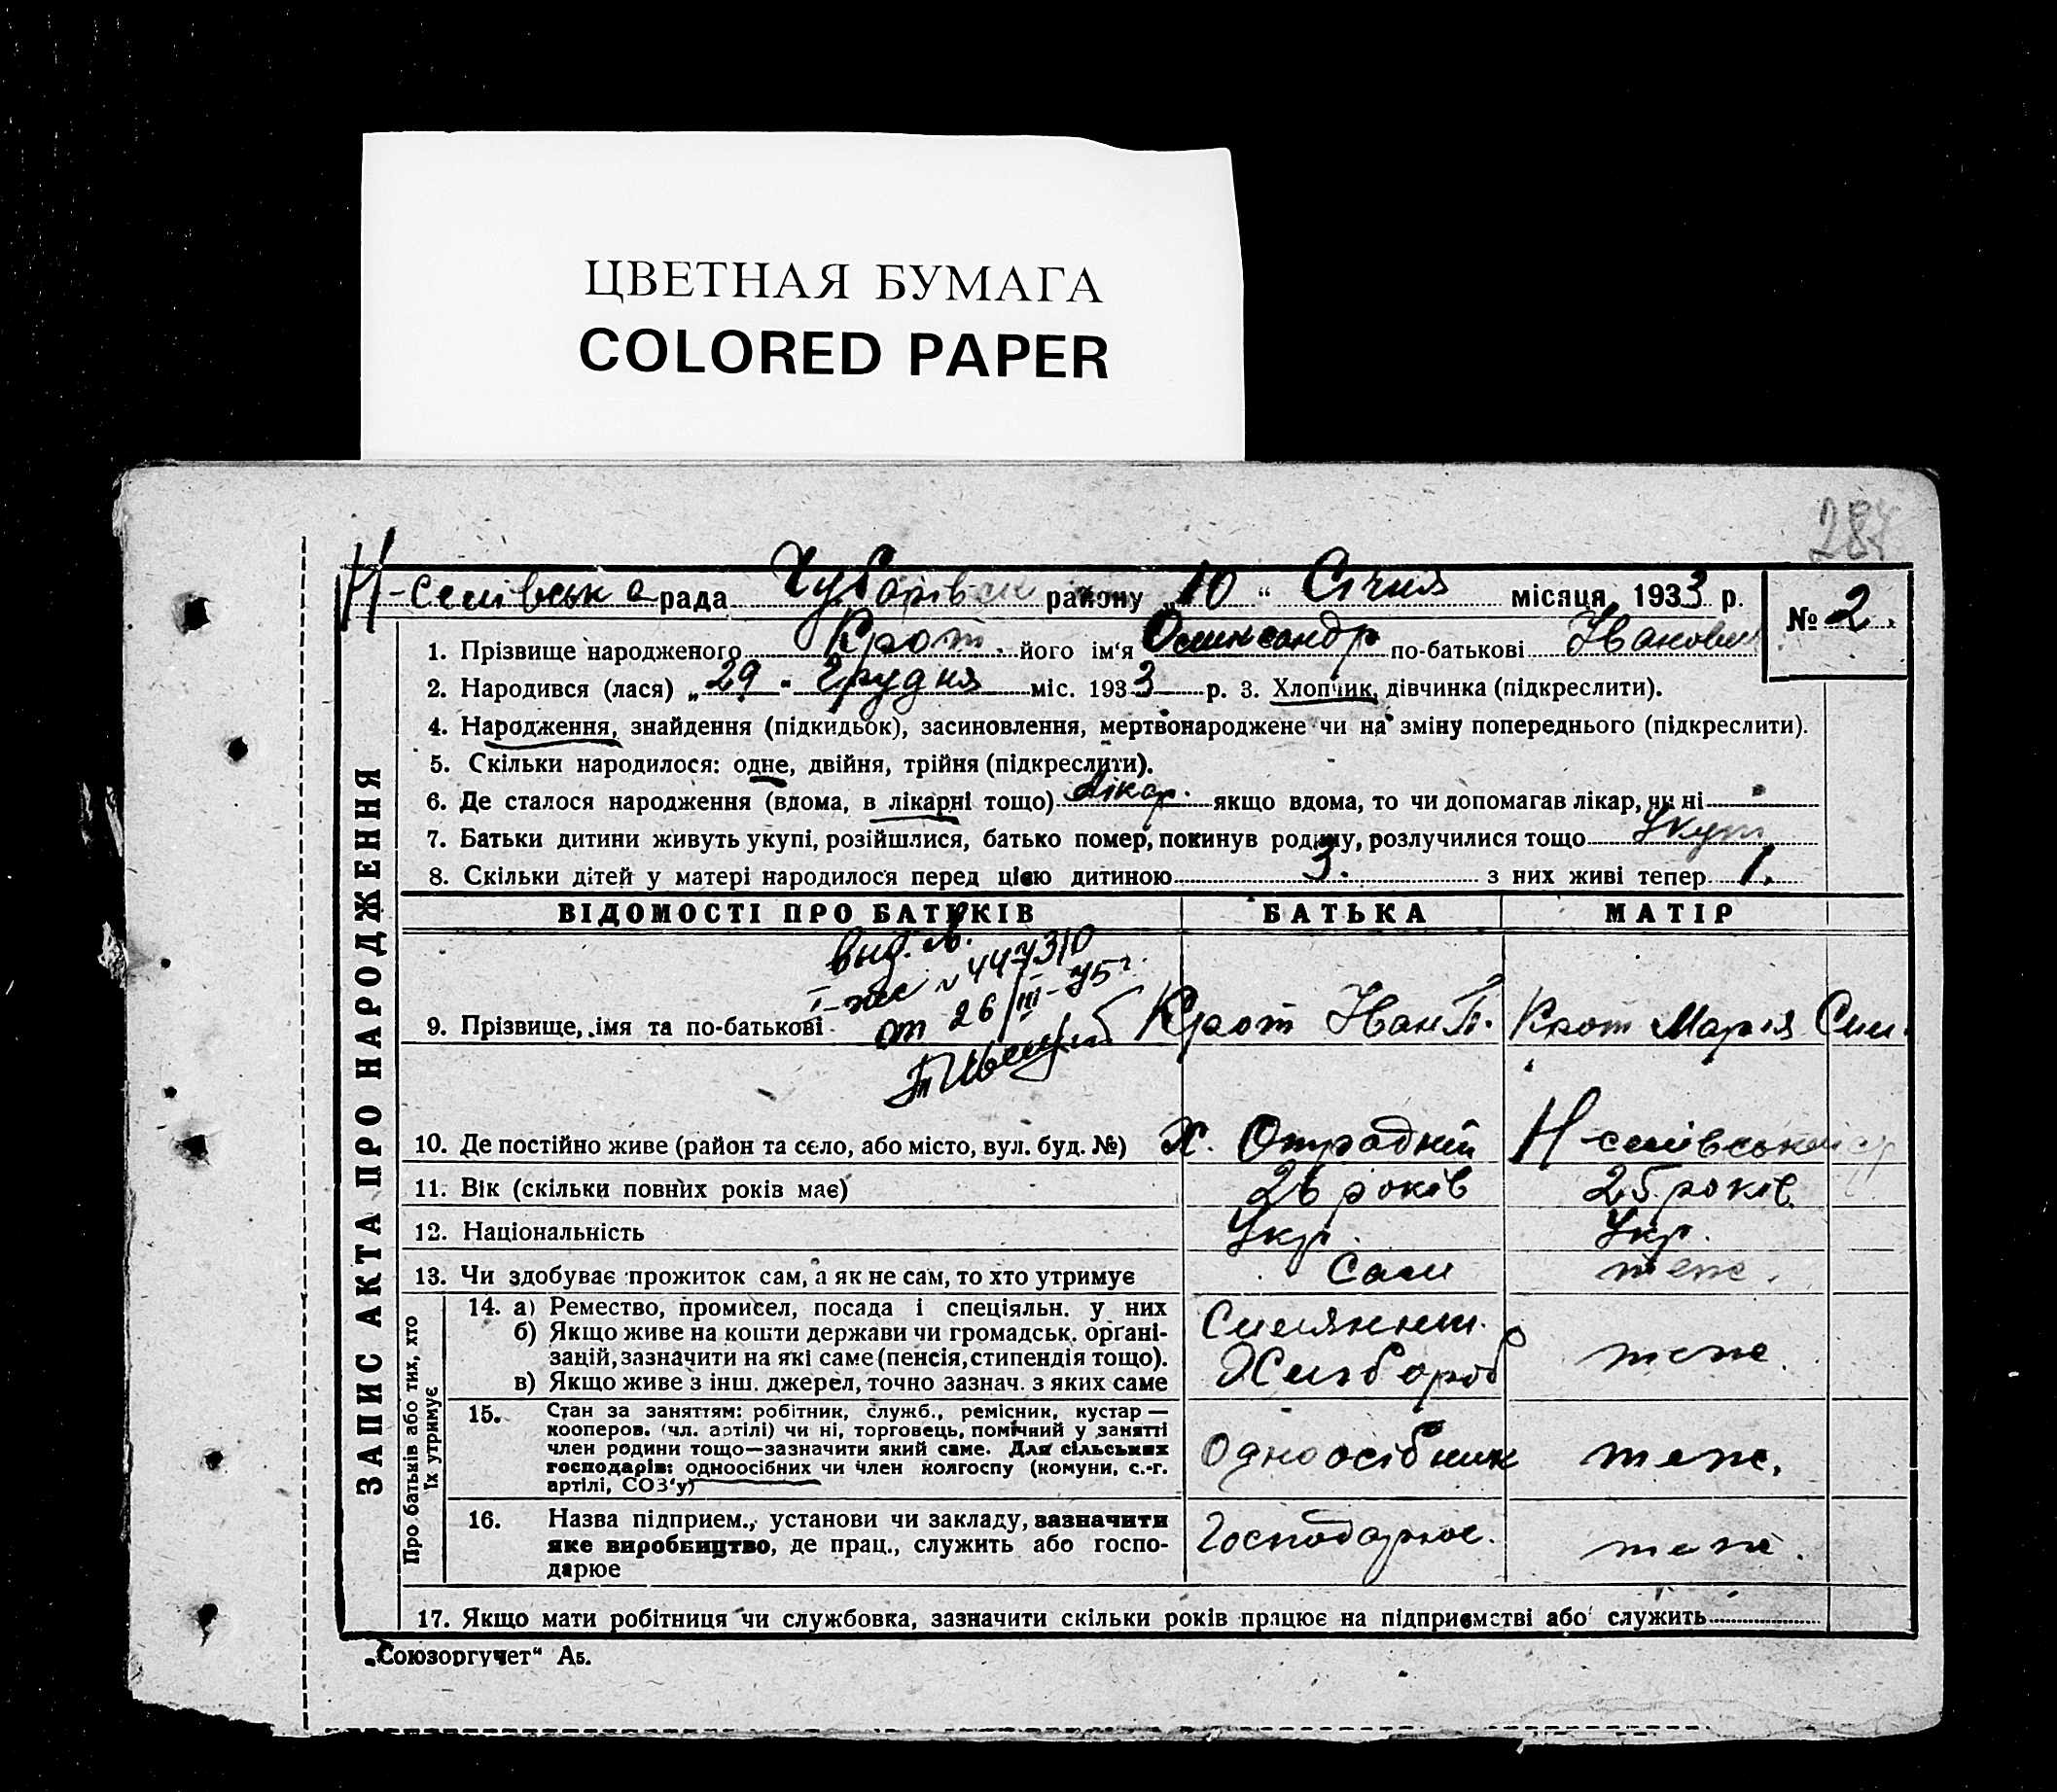 ЦВЕТНАЯ БУМАГА
COLORED PAPER
284
Н-Селівська рада Чубарівськ району „10“ Січня місяця 1933 р. № 2.
1. Прізвище народженого Крот, його ім‘я Олександр по-батькові Іванович
2. Народився (лася) „29“ Грудня міс. 1933 р. 3. Хлопчик, дівчинка (підкреслити).
4. Народження, знайдення (підкидьок), засиновлення, мертвонароджене чи на зміну попереднього (підкреслити).
5. Скільки народилося: одне, двійня, трійня (підкреслити).
6. Де сталося народження (вдома, в лікарні тощо) Лікар. якщо вдома, то чи допомагав лікар, чи ні
7. Батьки дитини живуть укупі, розійшлися, батько помер, покинув родину, розлучилися тощо Укуп
8. Скільки дітей у матері народилося перед цією дитиною 3. з них живі тепер 1.
ЗАПИС АКТА ПРО НАРОДЖЕННЯ
ВІДОМОСТІ ПРО БАТЬКІВ БАТЬКА МАТІР
выд.
N 447310
от 26/III-75г.
9. Прізвище, імя та по-батькові Крот Іван П. Крот Марія Сем.
10. Де постійно живе (район та село, або місто, вул. буд. №) Х. Отрадний Н-селівської
11. Вік (скільки повних років має) 26 років 25 років.
12. Національність Укр. Укр.
13. Чи здобуває прожиток сам, а як не сам, то хто утримує Сам теж.
Про батьків або тих, хто їх утримує
14. а) Ремество, промисел, посада і спеціяльн. у них
б) Якщо живе на кошти держави чи громадськ. орґані-
зацій, зазначити на які саме (пенсія, стипендія тощо).
в) Якщо живе з інш. джерел, точно зазнач. з яких саме
Селянин.
Хлібороб
теж.
15. Стан за заняттям: робітник, служб., ремісник, кустар —
кооперов. (чл. артілі) чи ні, торговець, помічний у занятті
член родини тощо—зазначити який саме. Для сільських
господарів: одноосібних чи член колгоспу (комуни, с.-г.
артілі, СОЗ‘у)
Одноосібник теж.
16. Назва підприєм., установи чи закладу, зазначити
яке виробництво, де прац., служить або госпо-
дарює
Господарює. теж.
17. Якщо мати робітниця чи службовка, зазначити скільки років працює на підприємстві або служить
„Союзоргучет“ Аб.